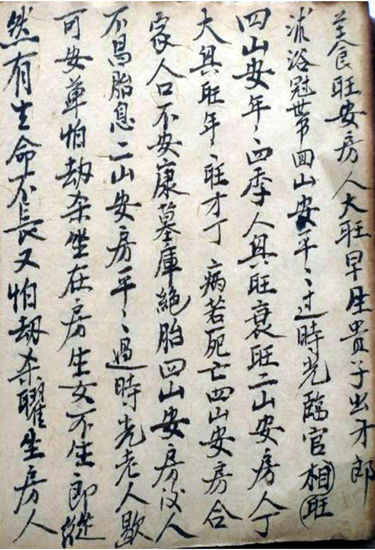 養旺安房人大旺早生貴子出才郎
沐浴冠帶四山安平々过時光臨官相旺
四山安年々四季人興旺衰旺二山安房人丁
大興旺年々旺才丁病若死亡四山安房合
家人口不安康墓庫絕胎四山安房人
不昌胎息二山安房平々過時光老人歇
可安葬怕劫杀坐在房生女不生郎縱
然有生命不長又怕劫杀曜生房人